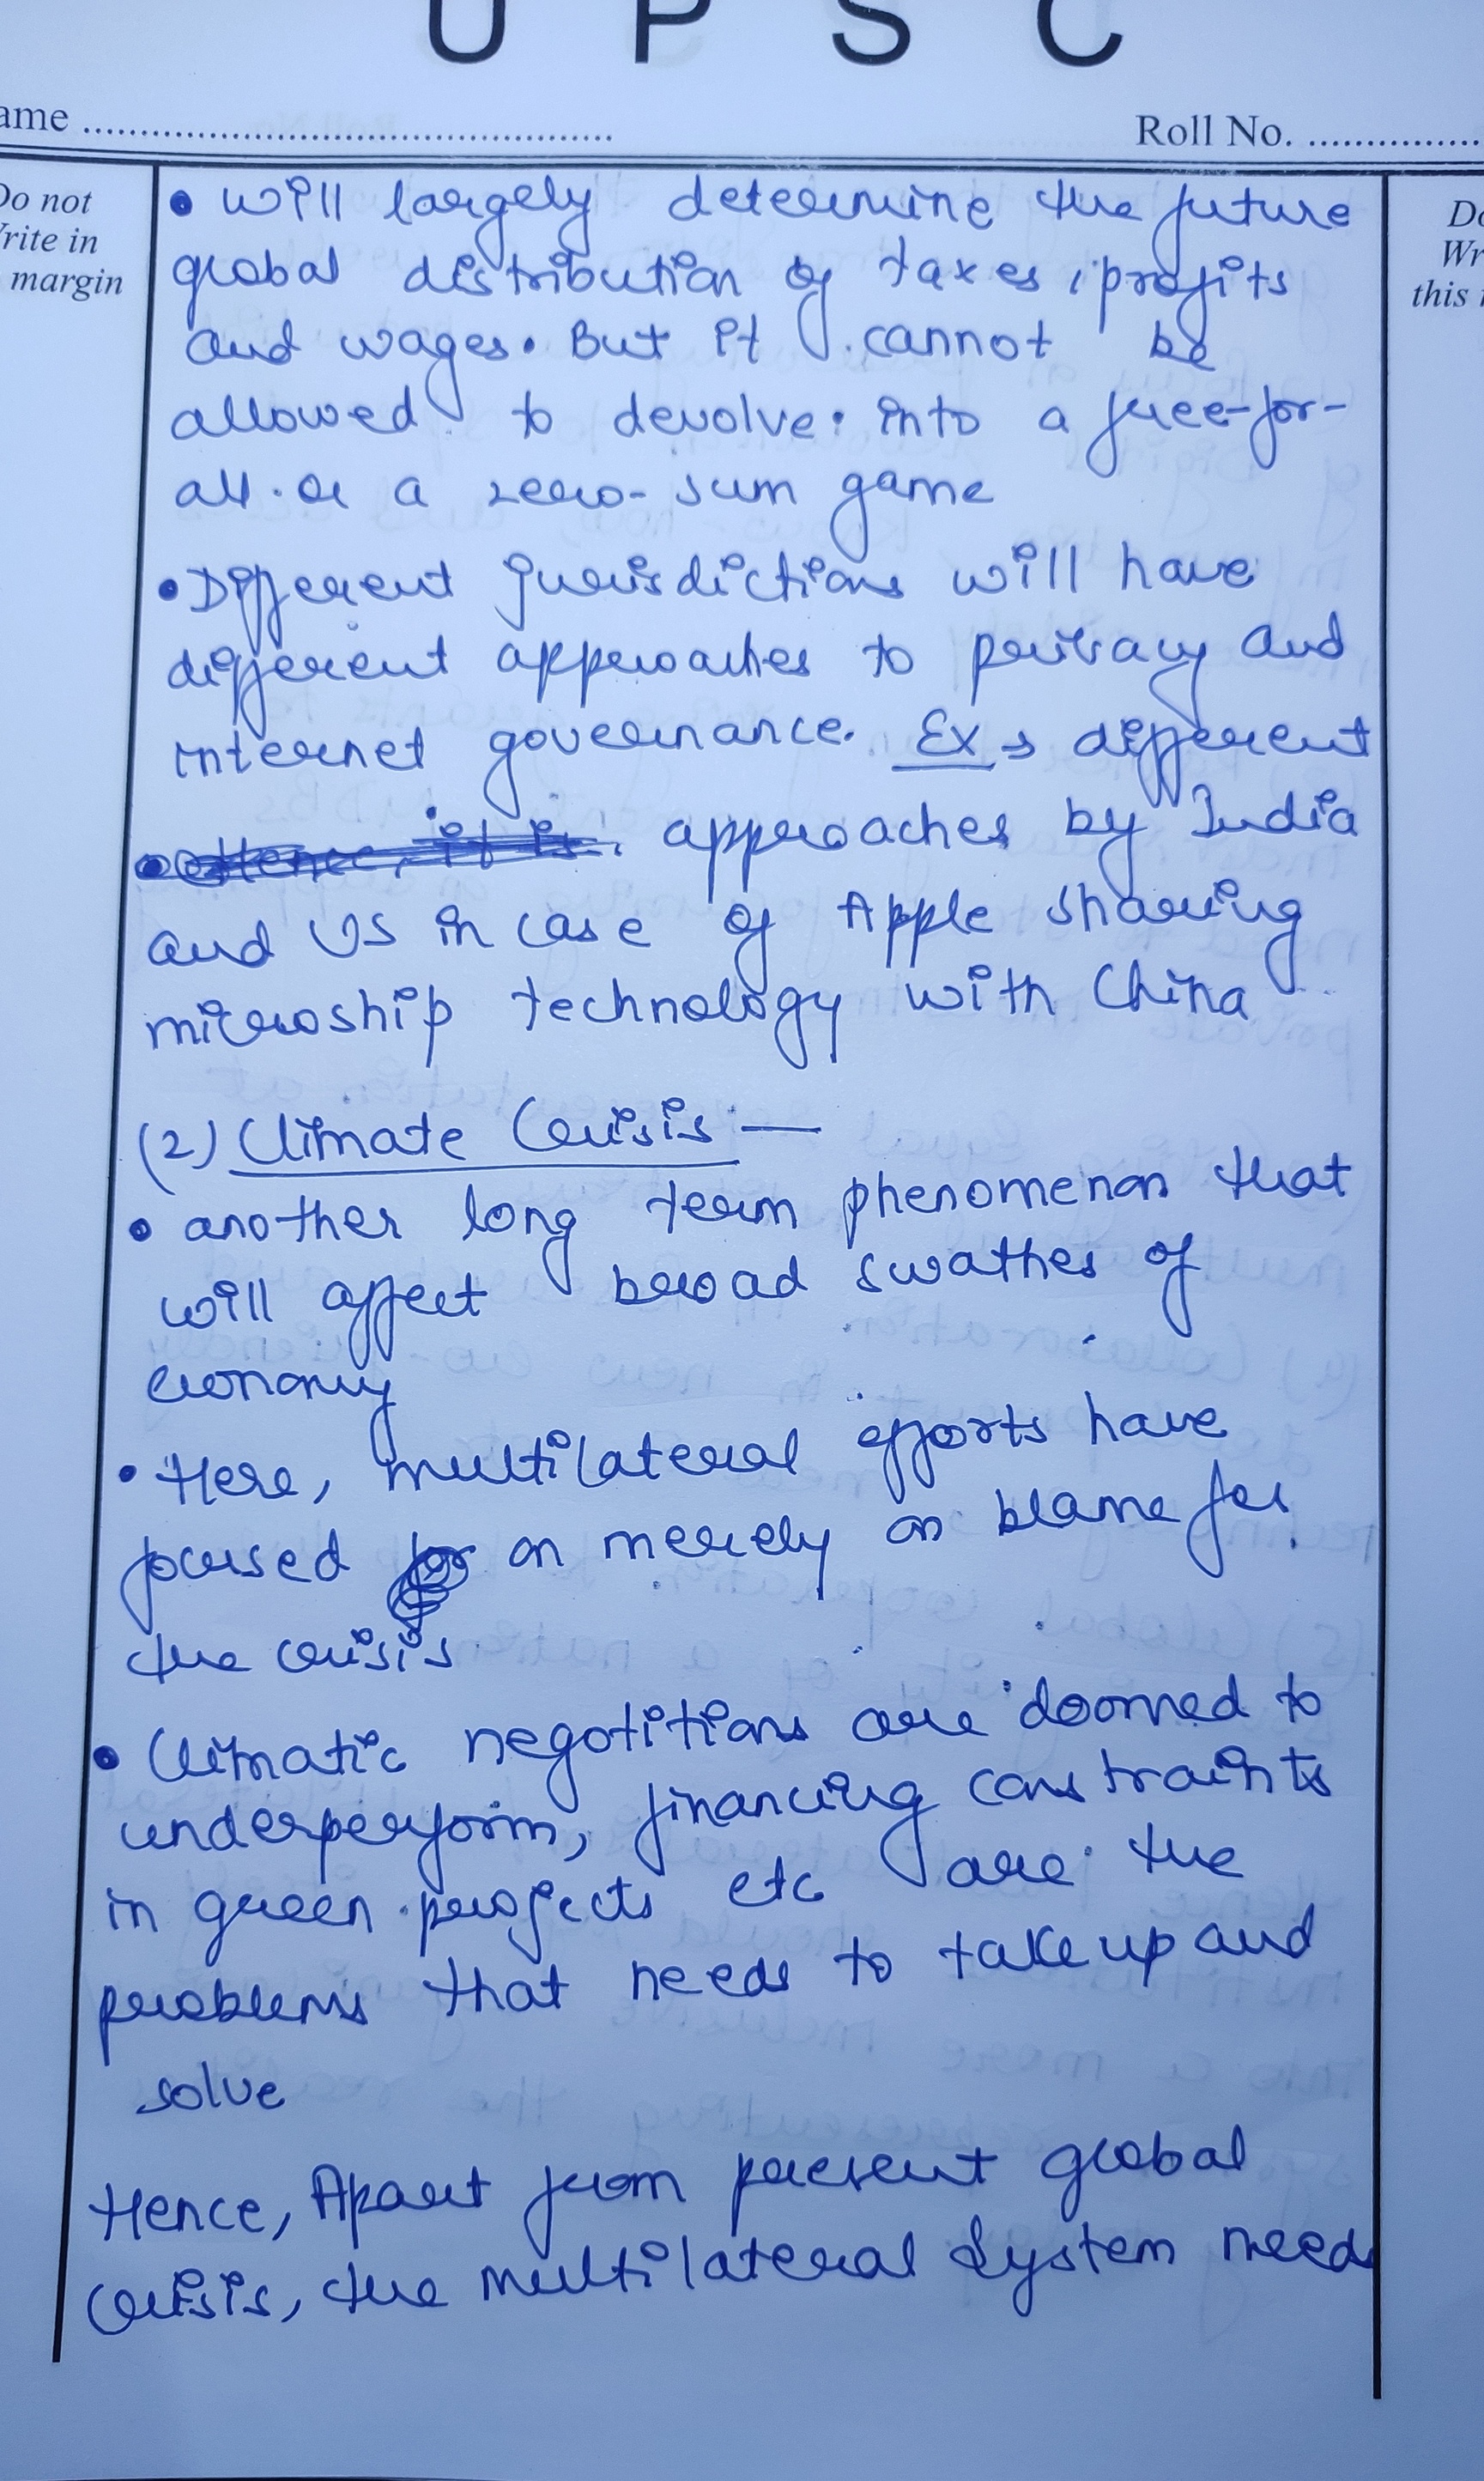 U P S C
ame
Roll No.
Do not
Write in
margin
Do
Wr
this
• will largely determine the future
global distribution of taxes, profits
and wages. But it cannot be
allowed to devolve into a free-for-
all or a zero-sum game
• Different jurisdictions will have
different approaches to privacy and
internet governance. Ex → different
Hence, it is approaches by India
and US in case of Apple sharing
microship technology with China
(2) Climate Crisis —
• another long term phenomenon that
will affect broad swathes of
economy
• Here, multilateral efforts have
focused on merely on blame for
the crisis
• Climatic negotitions are doomed to
underperform, financing constraints
in green projects etc are the
problems that needs to take up and
solve
Hence, Apart from present global
crisis, the multilateral system needs